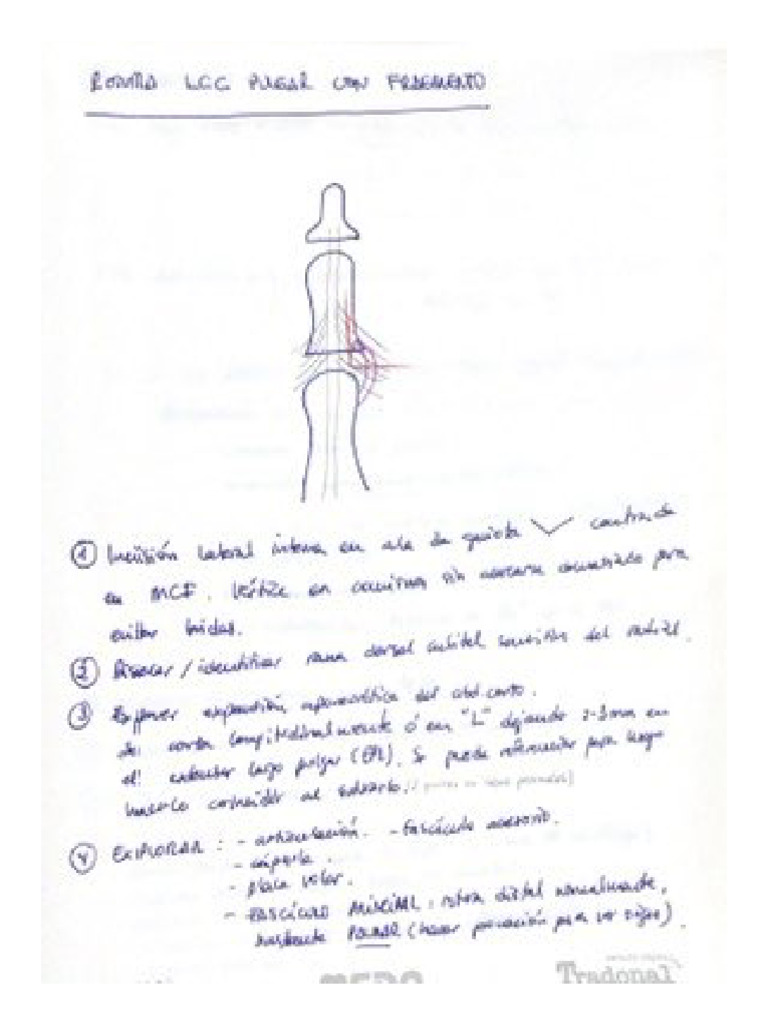 ROTURA LCC PULGAR CON FRAGMENTO
① Incisión lateral interna en ala de gaviota centrada
en MCF. Vértice en comisura sin acercarse demasiado para
evitar bridas.
② Disecar / identificar rama dorsal cubital sensitiva del radial.
③ Exponer expansión aponeurótica del abd. corto.
Se corta longitudinalmente ó en "L" dejando 2-3mm en
el extensor largo pulgar (EPL). Se puede referenciar para luego
hacerlo coincidir al suturarlo.
④ EXPLORAR: - articulación. - Fascículo accesorio.
- cápsula.
- placa volar.
- FASCÍCULO PRINCIPAL: rotura distal normalmente,
bastante PALMAR (hacer pronación para ver mejor).
Tradonal